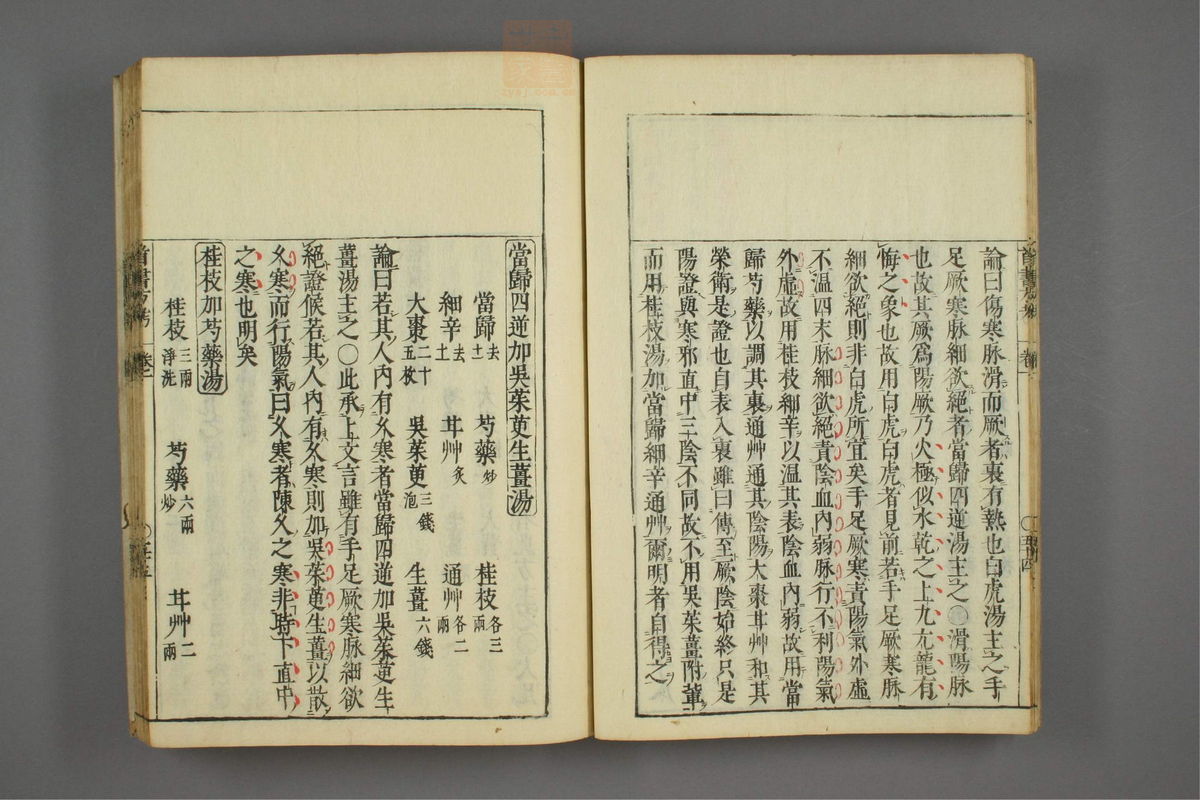 論曰傷寒脉滑而厥者裏有熱也白虎湯主之手
足厥寒脉細欲絕者當歸四逆湯主之滑陽脉
也故其厥爲陽厥乃火極似水乾之上九亢龍有
悔之象也故用白虎白虎者見前若手足厥寒脉
細欲絕則非白虎所宜矣手足厥寒責陽氣外虛
不溫四末脉細欲絕責陰血內弱脉行不利陽氣
外虛故用桂枝細辛以溫其表陰血內弱故用當
歸芍藥以調其裏通艸通其陰陽大棗甘艸和其
榮衛是證也自表入裏雖曰傳至厥陰始終只是
陽證與寒邪直中三陰不同故不用吳茱薑附軰
而用桂枝湯加當歸細辛通艸爾明者自得之
當歸四逆加吳茱萸生薑湯
當歸去土 芍藥炒 桂枝各三兩
細辛去土 甘艸炙 通艸各二兩
大棗二十五枚 吳茱萸三錢泡 生薑六錢
論曰若其人內有久寒者當歸四逆加吳茱萸生
薑湯主之〇此承上文言雖有手足厥寒脉細欲
絕證候若其人內有久寒則加吳茱萸生薑以散
久寒而行陽氣曰久寒者陳久之寒非時下直中
之寒也明矣
桂枝加芍藥湯
桂枝三兩淨洗 芍藥六兩炒 甘艸二兩